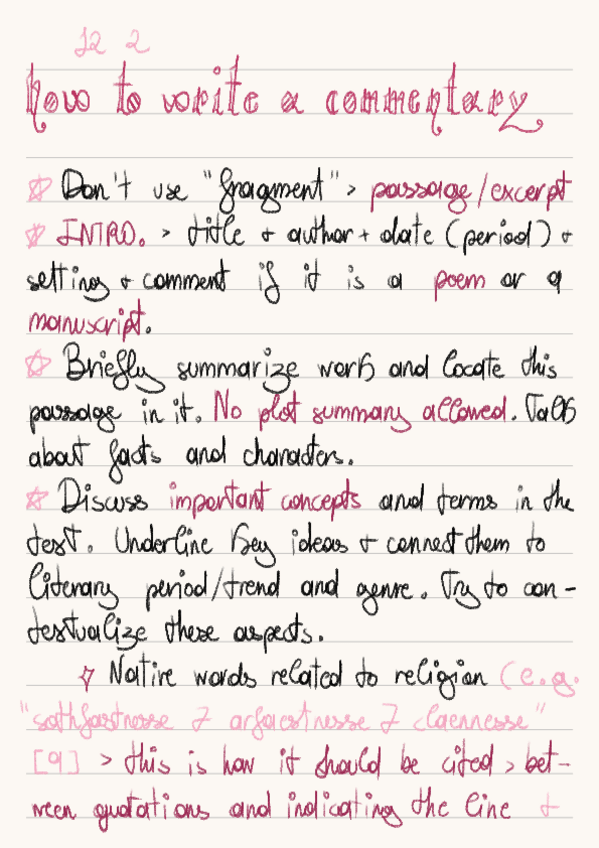 how to write a commentary
Don't use "fragment" > passage/excerpt
INTRO. > title + author + date (period) +
setting + comment if it is a poem or a
manuscript.
Briefly summarize work and locate this
passage in it. No plot summary allowed. Talk
about facts and characters.
Discuss important concepts and terms in the
text. Underline key ideas + connect them to
literary period/trend and genre. Try to con-
textualize these aspects.
Native words related to religion (e.g.
"sothfastnesse 7 arfaestnesse 7 claennesse"
[9] > this is how it should be cited > bet-
ween quotations and indicating the line +